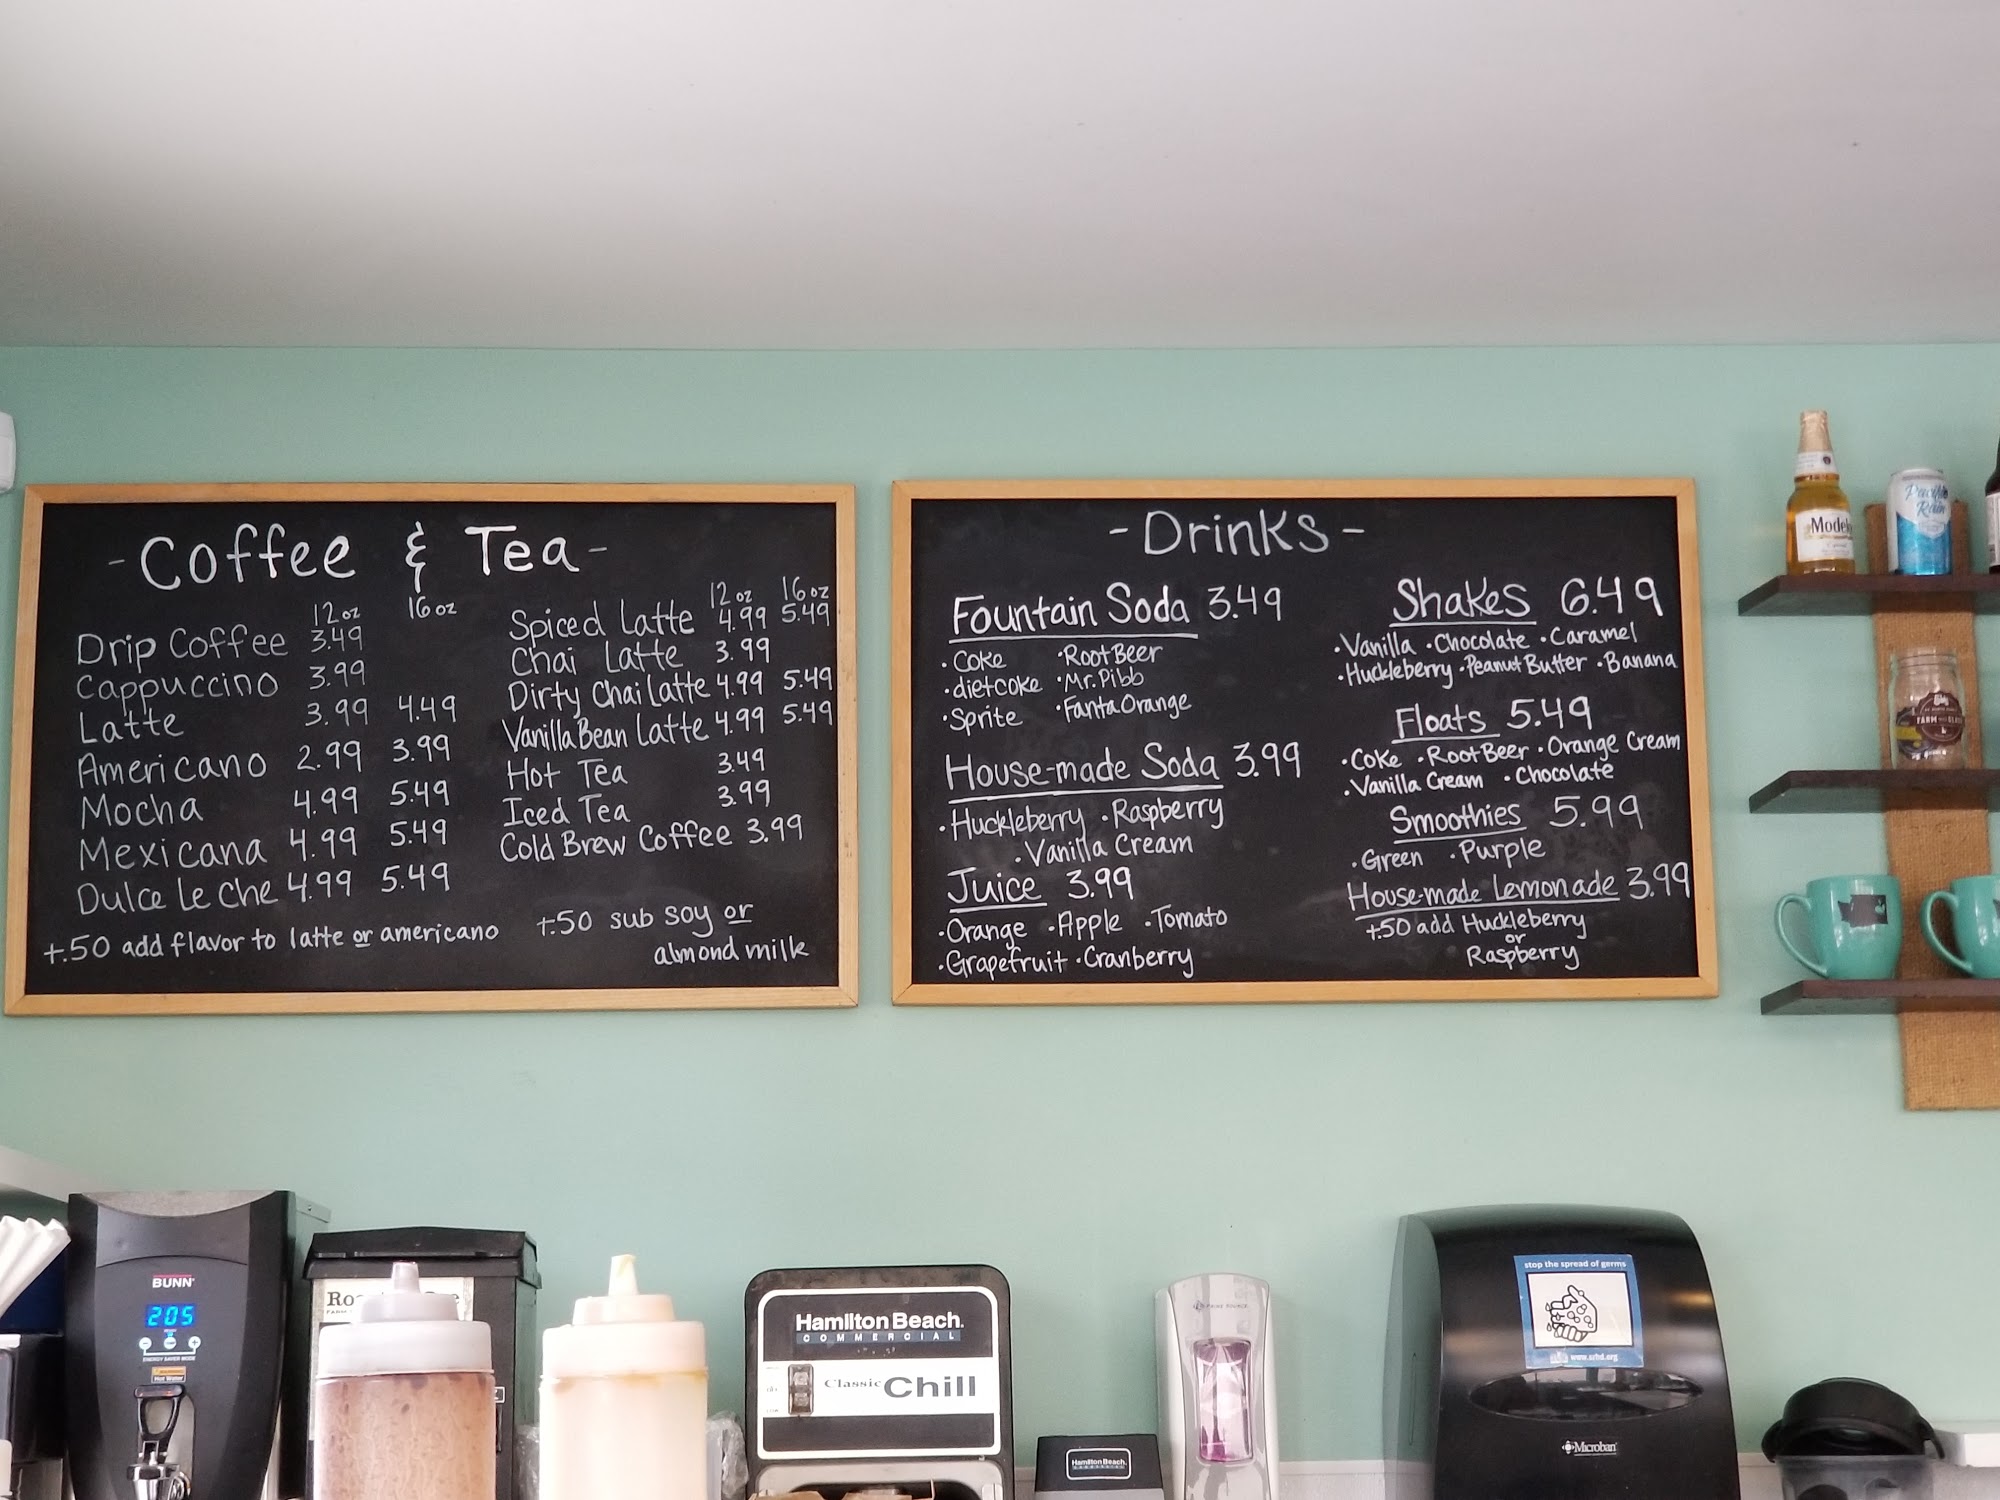 - Coffee & Tea -
12oz 16oz
Drip Coffee 3.49
Cappuccino 3.99
Latte 3.99 4.49
Americano 2.99 3.99
Mocha 4.99 5.49
Mexicana 4.99 5.49
Dulce Le Che 4.99 5.49
+.50 add flavor to latte or americano
12oz 16oz
Spiced Latte 4.99 5.49
Chai Latte 3.99
Dirty Chai Latte 4.99 5.49
Vanilla Bean Latte 4.99 5.49
Hot Tea 3.49
Iced Tea 3.99
Cold Brew Coffee 3.99
+.50 sub soy or
almond milk
- Drinks -
Fountain Soda 3.49
· Coke · Root Beer
· diet coke · Mr. Pibb
· Sprite · Fanta Orange
House-made Soda 3.99
· Huckleberry · Raspberry
· Vanilla Cream
Juice 3.99
· Orange · Apple · Tomato
· Grapefruit · Cranberry
Shakes 6.49
· Vanilla · Chocolate · Caramel
· Huckleberry · Peanut Butter · Banana
Floats 5.49
· Coke · Root Beer · Orange Cream
· Vanilla Cream · Chocolate
Smoothies 5.99
· Green · Purple
House-made Lemonade 3.99
+.50 add Huckleberry
or
Raspberry
Pacific
Rain
FARM
BUNN
205
ENERGY SAVER MODE
Hot Water
Hamilton Beach.
COMMERCIAL
Classic Chill
Hamilton Beach.
stop the spread of germs
www.srhd.org
Microban